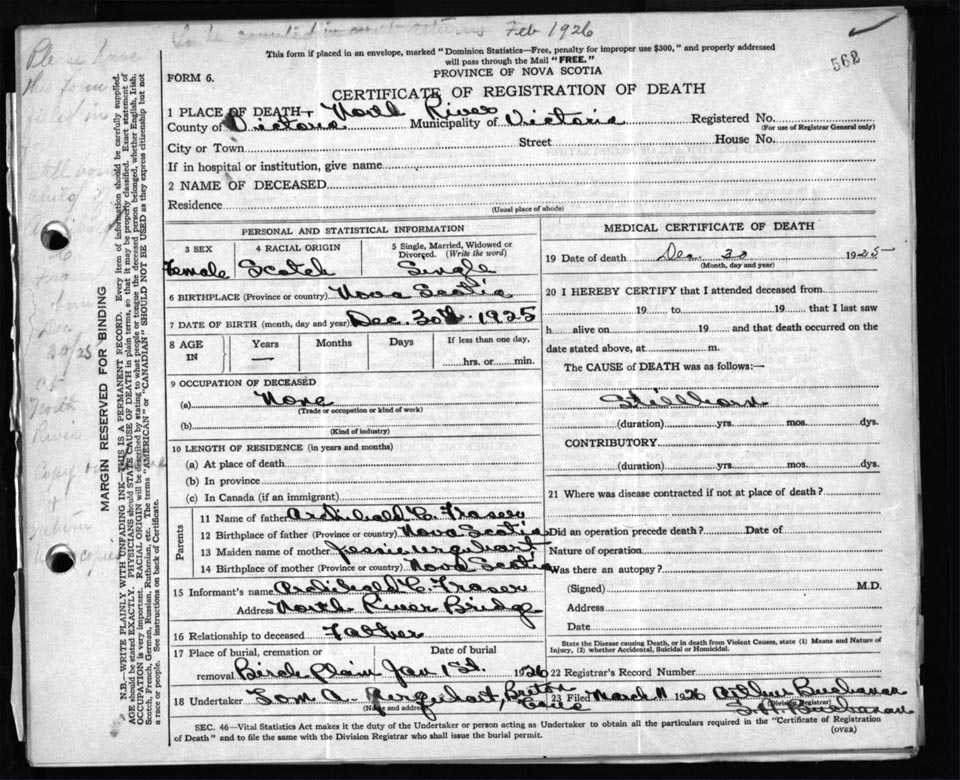 To be counted in next returns Feb 1926
562
This form if placed in an envelope, marked "Dominion Statistics—Free, penalty for improper use $300," and properly addressed
will pass through the Mail "FREE."
PROVINCE OF NOVA SCOTIA
FORM 6.
CERTIFICATE OF REGISTRATION OF DEATH
1 PLACE OF DEATH— North River
County of Victoria Municipality of Victoria Registered No.
(For use of Registrar General only)
City or Town Street House No.
If in hospital or institution, give name
2 NAME OF DECEASED
Residence
(Usual place of abode)
PERSONAL AND STATISTICAL INFORMATION
3 SEX 4 RACIAL ORIGIN 5 Single, Married, Widowed or Divorced. (Write the word)
Female Scotch Single
6 BIRTHPLACE (Province or country) Nova Scotia
7 DATE OF BIRTH (month, day and year) Dec. 30th 1925
8 AGE IN Years Months Days If less than one day,
— hrs. or min.
9 OCCUPATION OF DECEASED
(a) None
(Trade or occupation or kind of work)
(b)
(Kind of industry)
10 LENGTH OF RESIDENCE (in years and months)
(a) At place of death
(b) In province
(c) In Canada (if an immigrant)
Parents
11 Name of father Archibald C. Fraser
12 Birthplace of father (Province or country) Nova Scotia
13 Maiden name of mother Jessie Urquhart
14 Birthplace of mother (Province or country) Nova Scotia
15 Informant's name Archibald C. Fraser
Address North River Bridge
16 Relationship to deceased Father
17 Place of burial, cremation or Date of burial
removal Birch Plain Jan 1st. 1926
18 Undertaker Tom A. Urquhart, Breton Cove
(Name and address)
MEDICAL CERTIFICATE OF DEATH
19 Date of death Dec 30 1925
(Month, day and year)
20 I HEREBY CERTIFY that I attended deceased from
19 to 19 that I last saw
h alive on 19 and that death occurred on the
date stated above, at m.
The CAUSE of DEATH was as follows:—
Stillborn
(duration) yrs. mos. dys.
CONTRIBUTORY
(duration) yrs. mos. dys.
21 Where was disease contracted if not at place of death?
Did an operation precede death? Date of
Nature of operation
Was there an autopsy?
(Signed) M.D.
Address
Date
State the Disease causing Death, or in death from Violent Causes, state (1) Means and Nature of
Injury, (2) whether Accidental, Suicidal or Homicidal.
22 Registrar's Record Number
23 Filed March 11 1926 Arthur Buchanan
(Division Registrar)
Buchanan
SEC. 46—Vital Statistics Act makes it the duty of the Undertaker or person acting as Undertaker to obtain all the particulars required in the "Certificate of Registration
of Death" and to file the same with the Division Registrar who shall issue the burial permit.
(OVER)
MARGIN RESERVED FOR BINDING
N.B.—WRITE PLAINLY WITH UNFADING INK—THIS IS A PERMANENT RECORD. Every item of information should be carefully supplied.
AGE should be stated EXACTLY. PHYSICIANS should STATE CAUSE OF DEATH in plain terms, so that it may be properly classified. Exact statement of
OCCUPATION is very important. RACIAL ORIGIN will be described by stating to what people or tongue the deceased person belonged, whether English, Irish,
Scotch, French, German, Russian, Ruthenian, etc. The terms "AMERICAN" or "CANADIAN" SHOULD NOT BE USED as they express citizenship but not
a race or people. See instructions on back of Certificate.
Please have
this form
filled in
for
stillborn
child of
Archibald
Dec
30/25
at
North
River
Copy
+
return